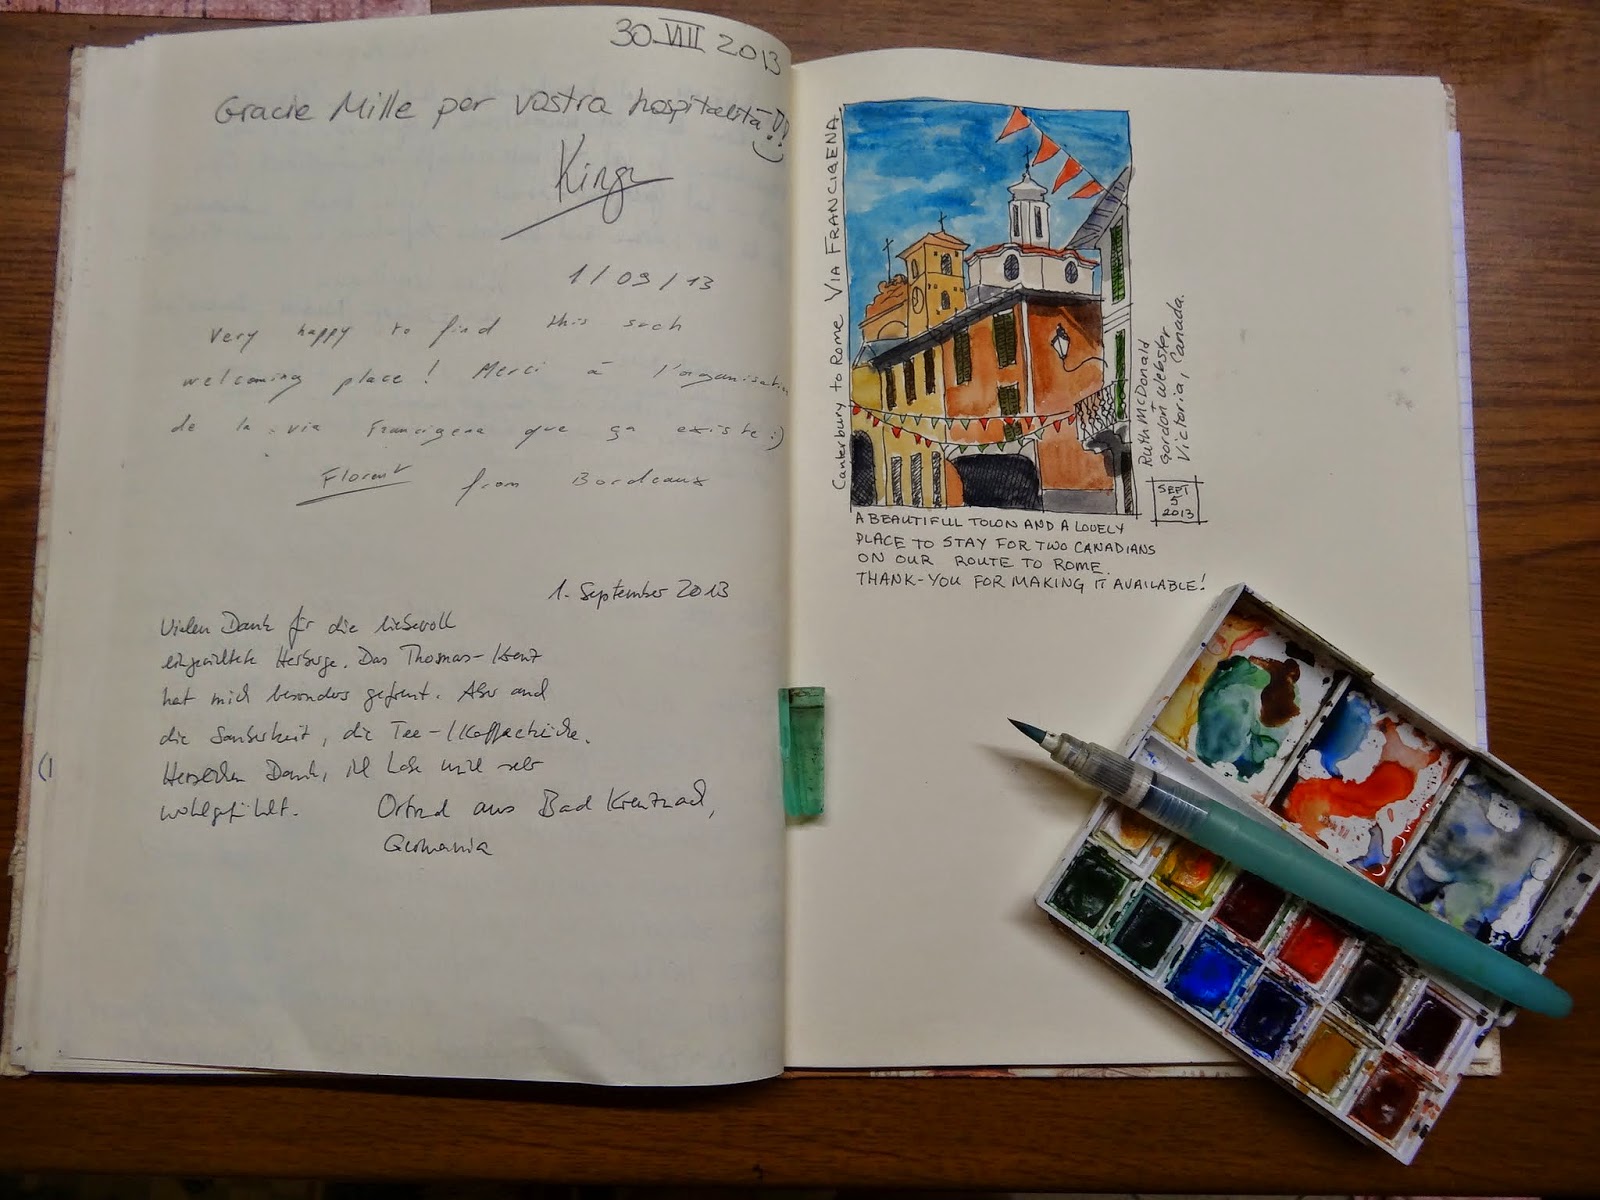 30 VIII 2013
Gracie Mille per vostra hospitalità!!
Kinga
1/09/13
Very happy to find this such
welcoming place! Merci à l'organisation
de la via Francigena que ça existe :)
Florent from Bordeaux
1. September 2013
Vielen Dank für die liebevoll
eingerichtete Herberge. Das Thomas-Kreuz
hat mich besonders gefreut. Aber auch
die Sauberkeit, die Tee-/Kaffeeküche.
Herzlichen Dank, ich habe mich sehr
wohlgefühlt. aus Bad Kreuznach,
Germania
Canterbury to Rome Via Francigena
Ruth McDonald
+
Gordon Webster
Victoria, Canada.
SEPT
5
2013
A BEAUTIFUL TOWN AND A LOVELY
PLACE TO STAY FOR TWO CANADIANS
ON OUR ROUTE TO ROME.
THANK-YOU FOR MAKING IT AVAILABLE!